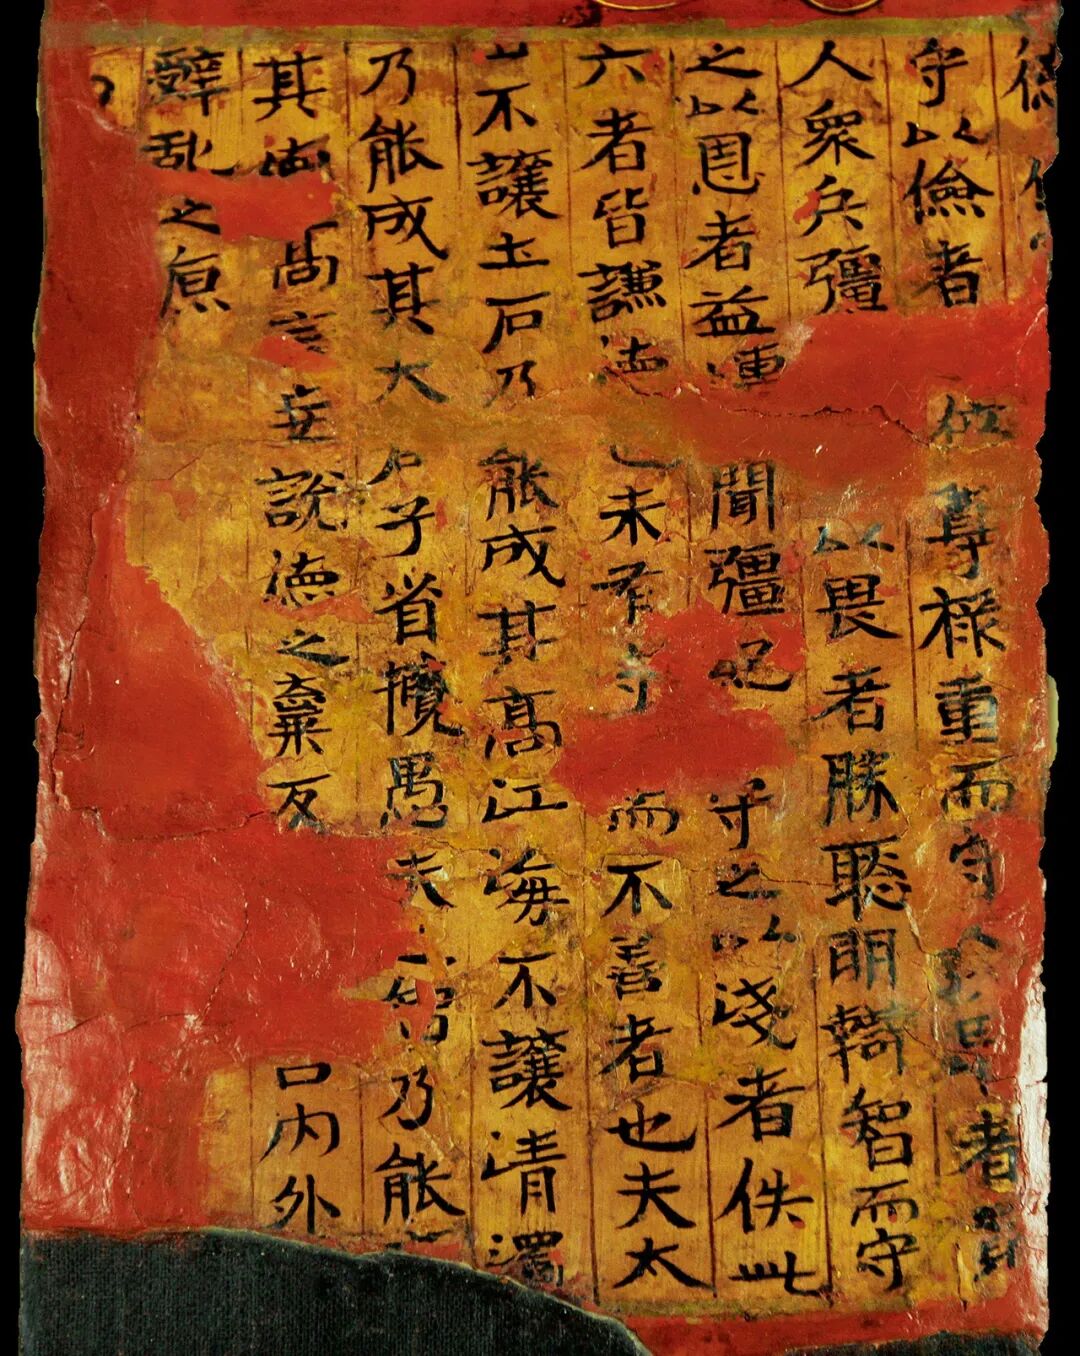 德
守以儉者 尊祿重而守 卑者
人衆兵彊 以畏者勝聡明 智而守
之以愚者益 聞彊記 守之以淺者佚此
六者皆謙德也未有守 而不善者也夫太
山不讓土石乃能成其高江海不讓清濁
乃能成其大君子省攬愚夫 乃能
其 高言 說德之 反 口内外
辭乱之原